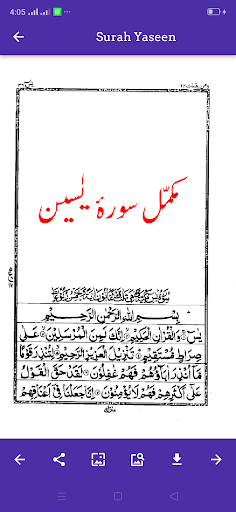 4:05
Surah Yaseen
مکمّل سورۂ یٰسین
بِسْمِ اللّٰهِ الرَّحْمٰنِ الرَّحِيْمِ
يٰسٓ ۚ وَالْقُرْاٰنِ الْحَكِيْمِ ۙ اِنَّكَ لَمِنَ الْمُرْسَلِيْنَ ۙ عَلٰى
صِرَاطٍ مُّسْتَقِيْمٍ ؕ تَنْزِيْلَ الْعَزِيْزِ الرَّحِيْمِ ۙ لِتُنْذِرَ قَوْمًا
مَّاۤ اُنْذِرَ اٰبَآؤُهُمْ فَهُمْ غٰفِلُوْنَ ۝ لَقَدْ حَقَّ الْقَوْلُ
عَلٰٓى اَكْثَرِهِمْ فَهُمْ لَا يُؤْمِنُوْنَ ۝ اِنَّا جَعَلْنَا فِيْٓ اَعْنَاقِهِمْ